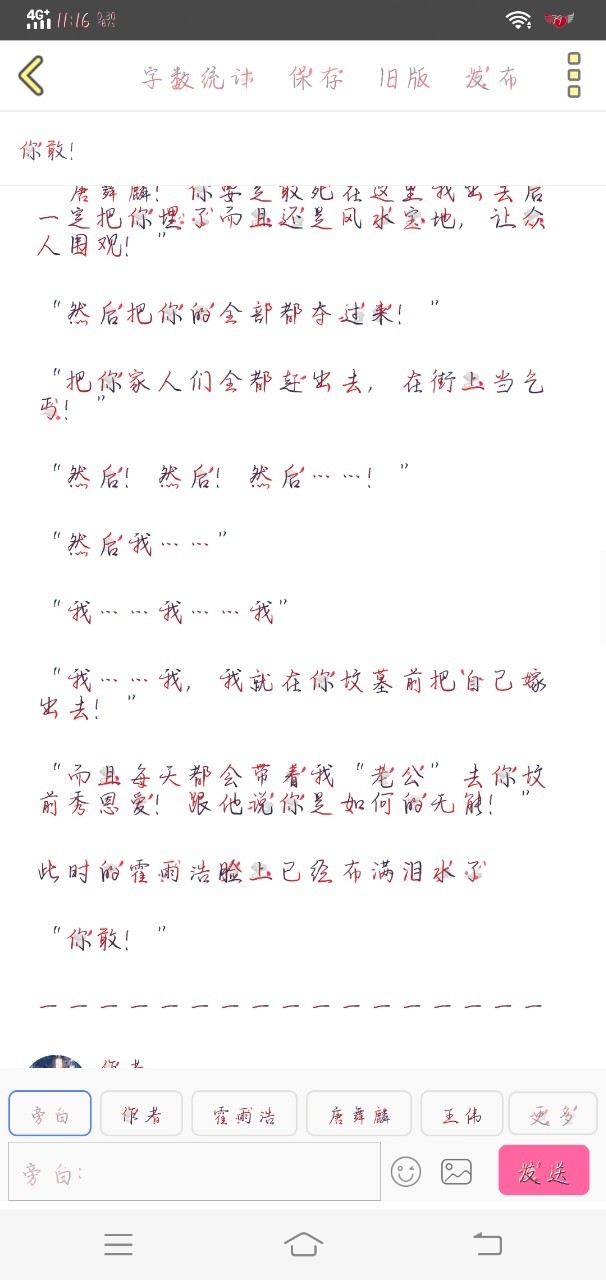 4G+ 11:16 0.30 KB/s 79
字数统计 保存 旧版 发布
你敢！
唐舞麟！你要是敢死在这里我出去后
一定把你埋了而且还是风水宝地，让众
人围观！”
“然后把你的全部都夺过来！”
“把你家人们全都赶出去，在街上当乞
丐！”
“然后！然后！然后……！”
“然后我……”
“我……我……我”
“我……我，我就在你坟墓前把自己嫁
出去！”
“而且每天都会带着我“老公”去你坟
前秀恩爱！跟他说你是如何的无能！”
此时的霍雨浩脸上已经布满泪水了
“你敢！”
一一一一一一一一一一一一一一一一一
作者
旁白 作者 霍雨浩 唐舞麟 王伟 更多
旁白： 发送